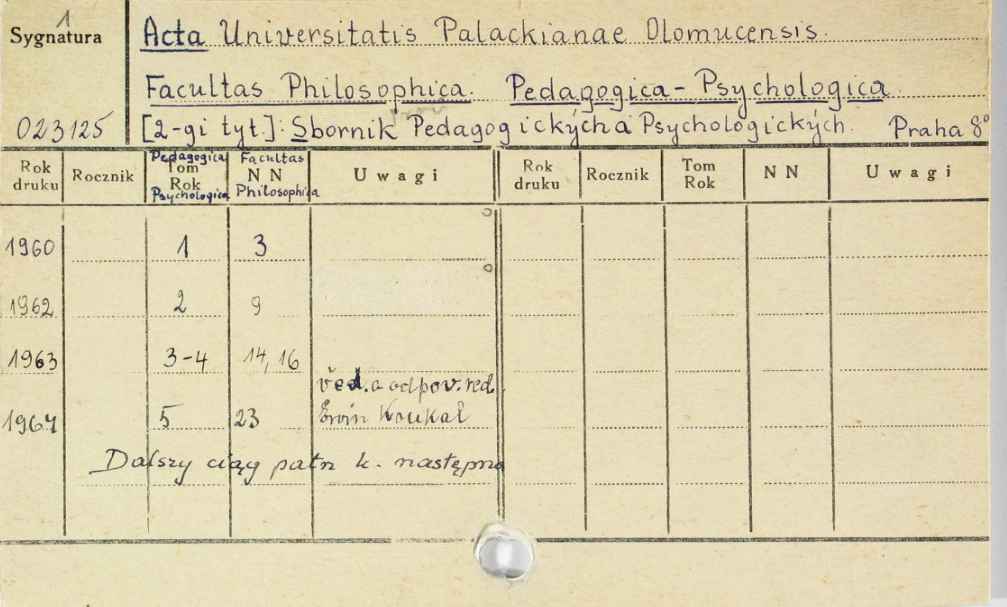 1
Sygnatura
Acta Universitatis Palackianae Olomucensis.
Facultas Philosophica. Pedagogica - Psychologica.
023125
[2-gi tyt.]: Sbornik Pedagogických a Psychologických. Praha 8°
Rok druku Rocznik Pedagogica Tom Rok Psychologica Facultas NN Philosophica Uwagi Rok druku Rocznik Tom Rok NN Uwagi
1960 1 3
1962 2 9
1963 3-4 14, 16
ved. a odpov. red.
1967 5 23 Ervin Koukal
Dalszy ciąg patrz k. następna